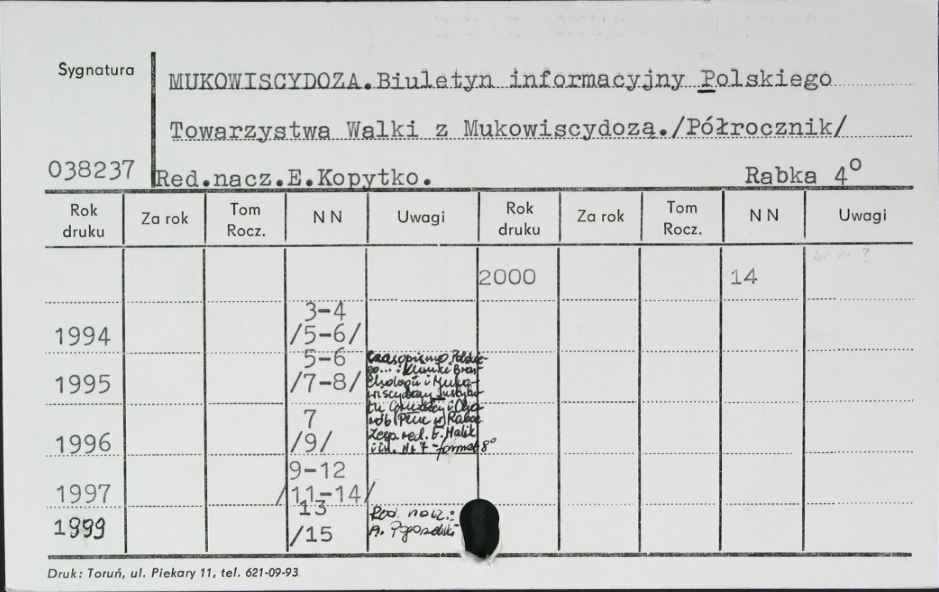 Sygnatura
MUKOWISCYDOZA.Biuletyn informacyjny Polskiego
Towarzystwa Walki z Mukowiscydozą./Półrocznik/
038237 Red.nacz.E.Kopytko. Rabka 4°
Rok druku Za rok Tom Rocz. N N Uwagi Rok druku Za rok Tom Rocz. N N Uwagi
2000 14
3-4
1994 /5-6/
5-6
1995 /7-8/
Czasopismo Polskie-
go... i Kliniki Bron-
chologii i Muko-
wiscydozy Instytu-
tu Gruźlicy i Cho-
rób Płuc w Rabce
Zesp. red. E. Malik
i in. Nr 7 - format 8°
7
1996 /9/
9-12
1997 /11-14/
13
1999 /15
Red. nacz.:
A. Pogorzelski
Druk: Toruń, ul. Piekary 11, tel. 621-09-93